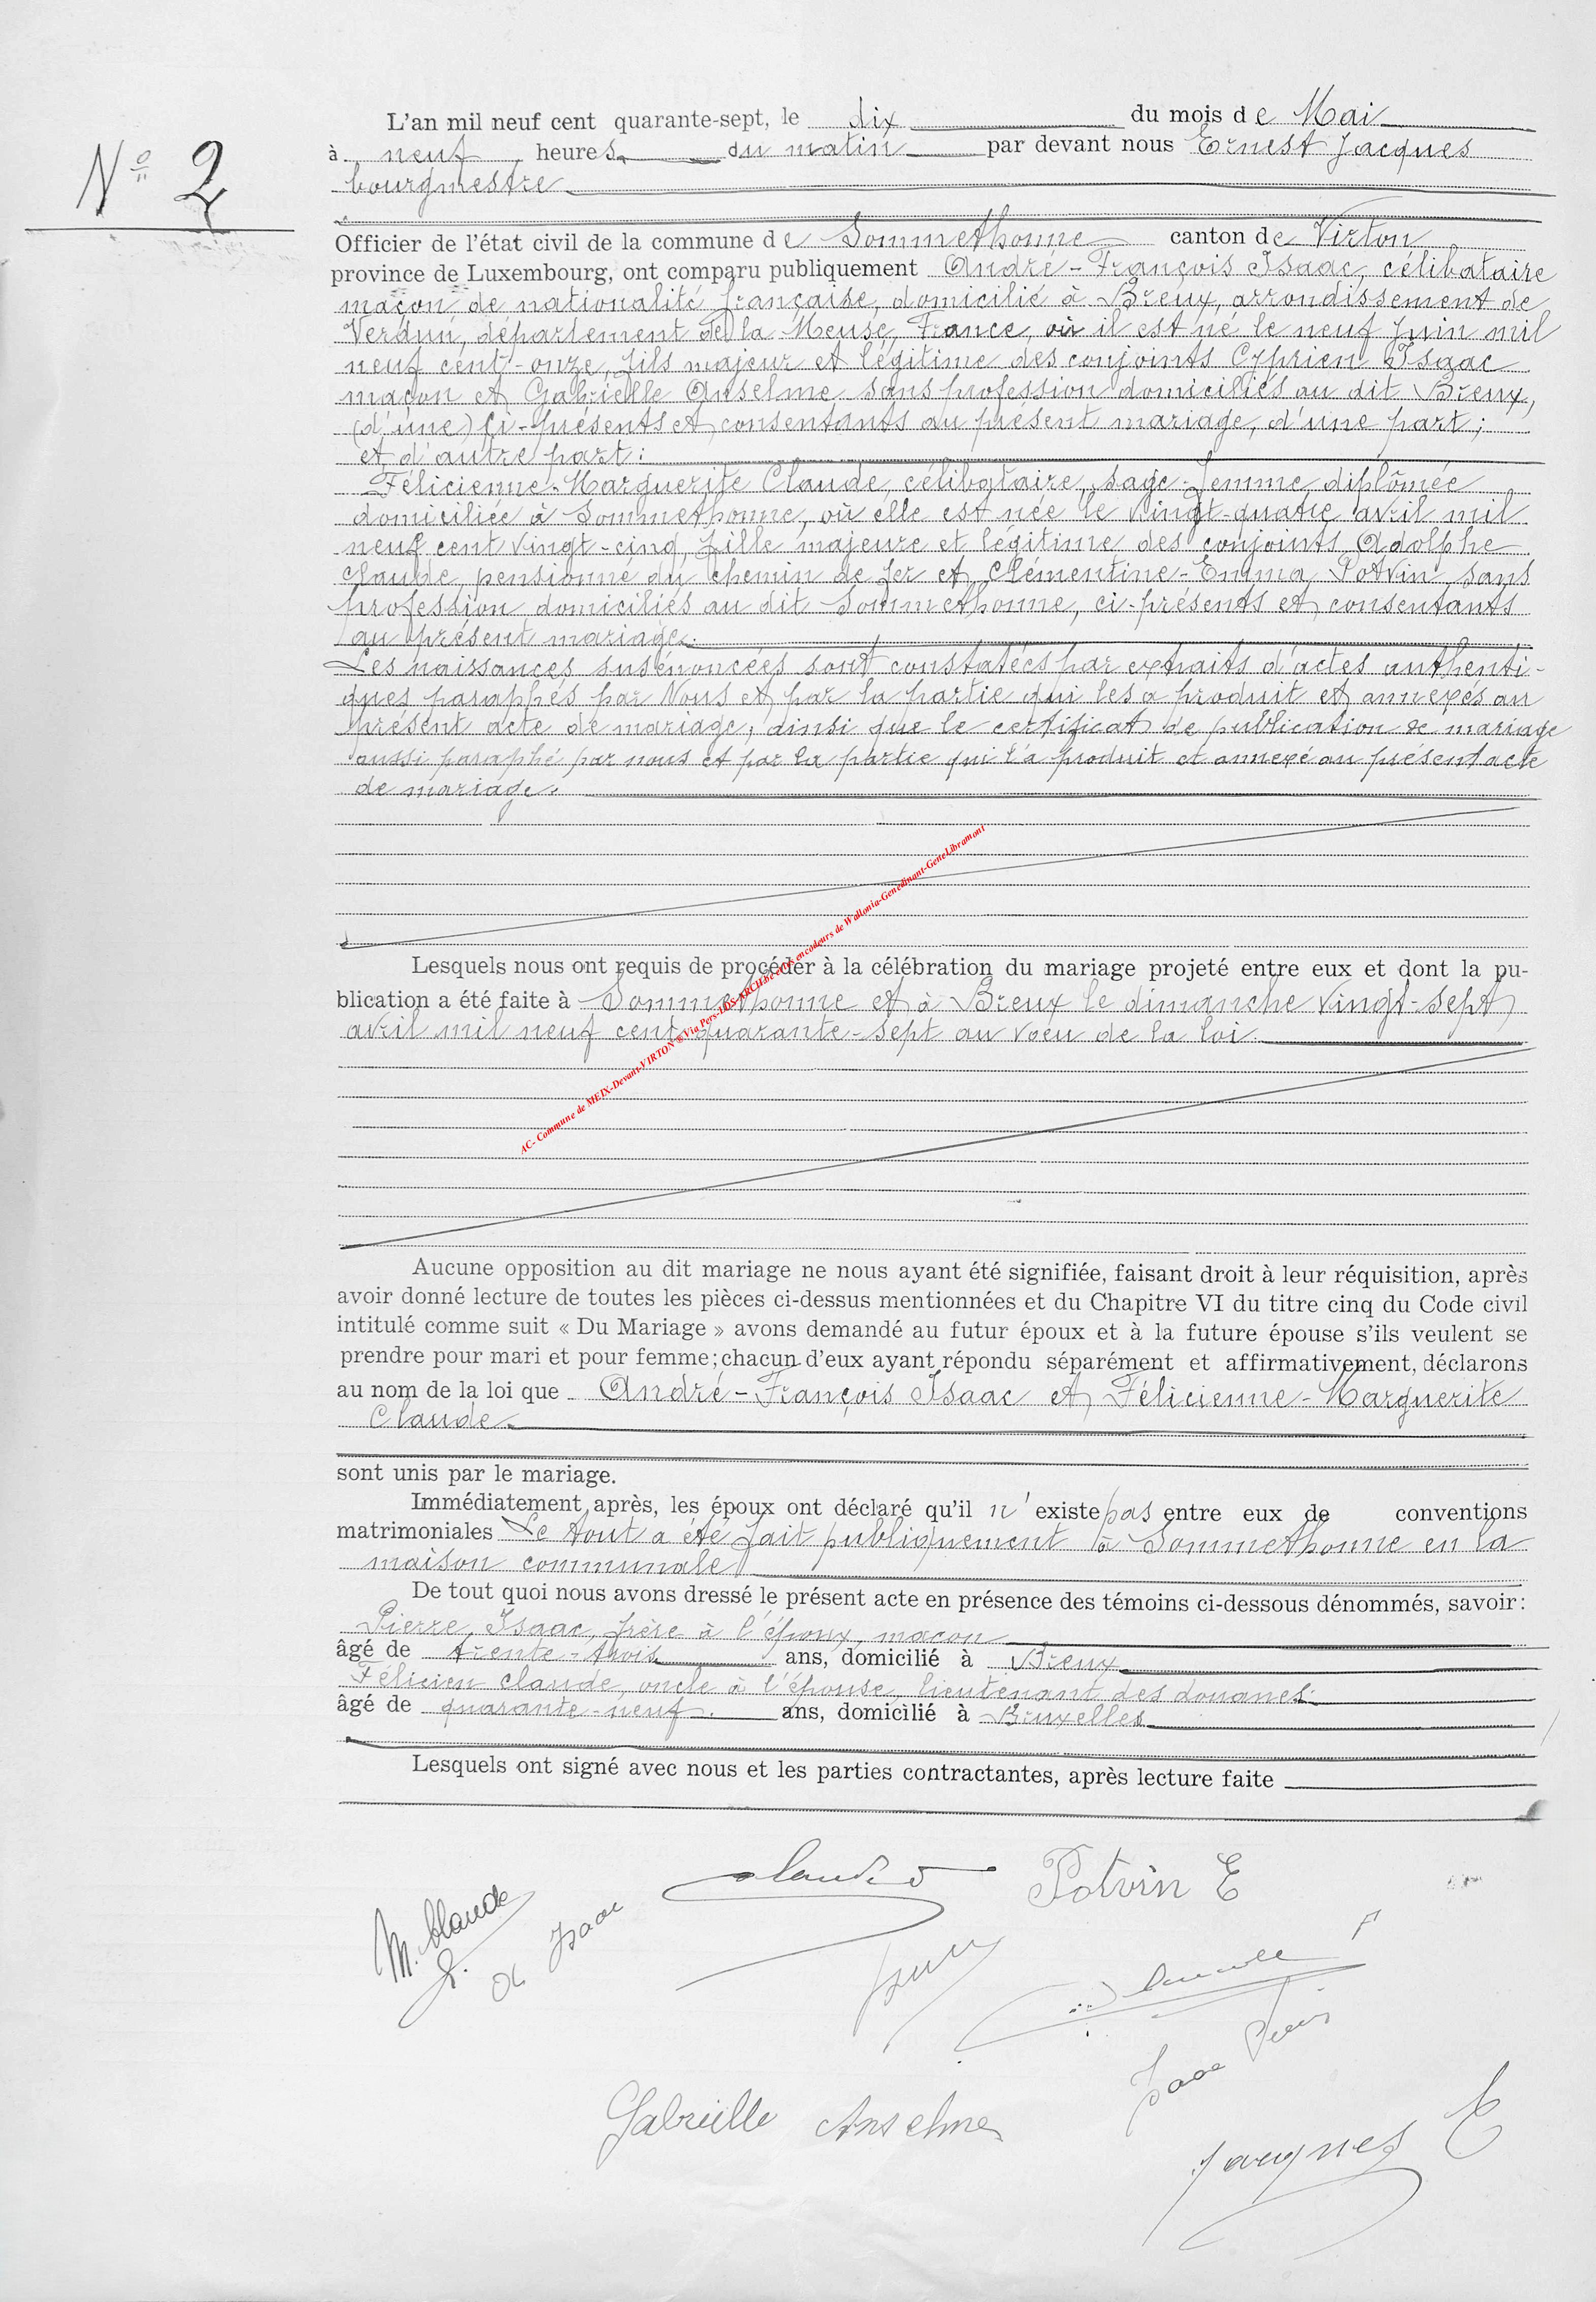 N° 2
L'an mil neuf cent quarante-sept, le dix du mois de Mai
à neuf heures du matin par devant nous Ernest Jacques
bourgmestre
Officier de l'état civil de la commune de Sommethonne canton de Virton
province de Luxembourg, ont comparu publiquement André-François Isaac, célibataire
maçon de nationalité française, domicilié à Breux, arrondissement de
Verdun, département de la Meuse, France, où il est né le neuf Juin mil
neuf cent-onze, fils majeur et légitime des conjoints Cyprien Isaac
maçon et Gabrielle Anselme sans profession domiciliés au dit Breux,
(d'une) ci-présents et consentants au présent mariage, d'une part;
et d'autre part:
Félicienne-Marguerite Claude, célibataire, sage-femme diplômée
domiciliée à Sommethonne, où elle est née le vingt-quatre avril mil
neuf cent vingt-cinq, fille majeure et légitime des conjoints Adolphe
Claude, pensionné du chemin de fer et Clémentine-Emma Potvin sans
profession domiciliés au dit Sommethonne, ci-présents et consentants
au présent mariage.
Les naissances susénoncées sont constatées par extraits d'actes authenti-
ques paraphés par Nous et par la partie qui les a produit et annexés au
présent acte de mariage, ainsi que le certificat de publication de mariage
aussi paraphé par nous et par la partie qui l'a produit et annexé au présent acte
de mariage.
AC- Commune de MEIX-Devant-VIRTON © Via Pers-LDS-ARCH-be et les encodeurs de Wallonia-Genedinant-GeneLibramont
Lesquels nous ont requis de procéder à la célébration du mariage projeté entre eux et dont la pu-
blication a été faite à Sommethonne et à Breux le dimanche vingt-sept
avril mil neuf cent quarante-sept au voeu de la loi.
Aucune opposition au dit mariage ne nous ayant été signifiée, faisant droit à leur réquisition, après
avoir donné lecture de toutes les pièces ci-dessus mentionnées et du Chapitre VI du titre cinq du Code civil
intitulé comme suit « Du Mariage » avons demandé au futur époux et à la future épouse s'ils veulent se
prendre pour mari et pour femme; chacun d'eux ayant répondu séparément et affirmativement, déclarons
au nom de la loi que André-François Isaac et Félicienne-Marguerite
Claude
sont unis par le mariage.
Immédiatement après, les époux ont déclaré qu'il n'existe pas entre eux de conventions
matrimoniales Le tout a été fait publiquement à Sommethonne en la
maison communale
De tout quoi nous avons dressé le présent acte en présence des témoins ci-dessous dénommés, savoir:
Pierre Isaac, frère à l'époux, maçon
âgé de trente-trois ans, domicilié à Breux
Félicien Claude, oncle à l'épouse, lieutenant des douanes
âgé de quarante-neuf ans, domicilié à Bruxelles
Lesquels ont signé avec nous et les parties contractantes, après lecture faite
M. Claude
Isaac
Claude
Potvin E
Isaac
Gabrielle Anselme
Jacques E